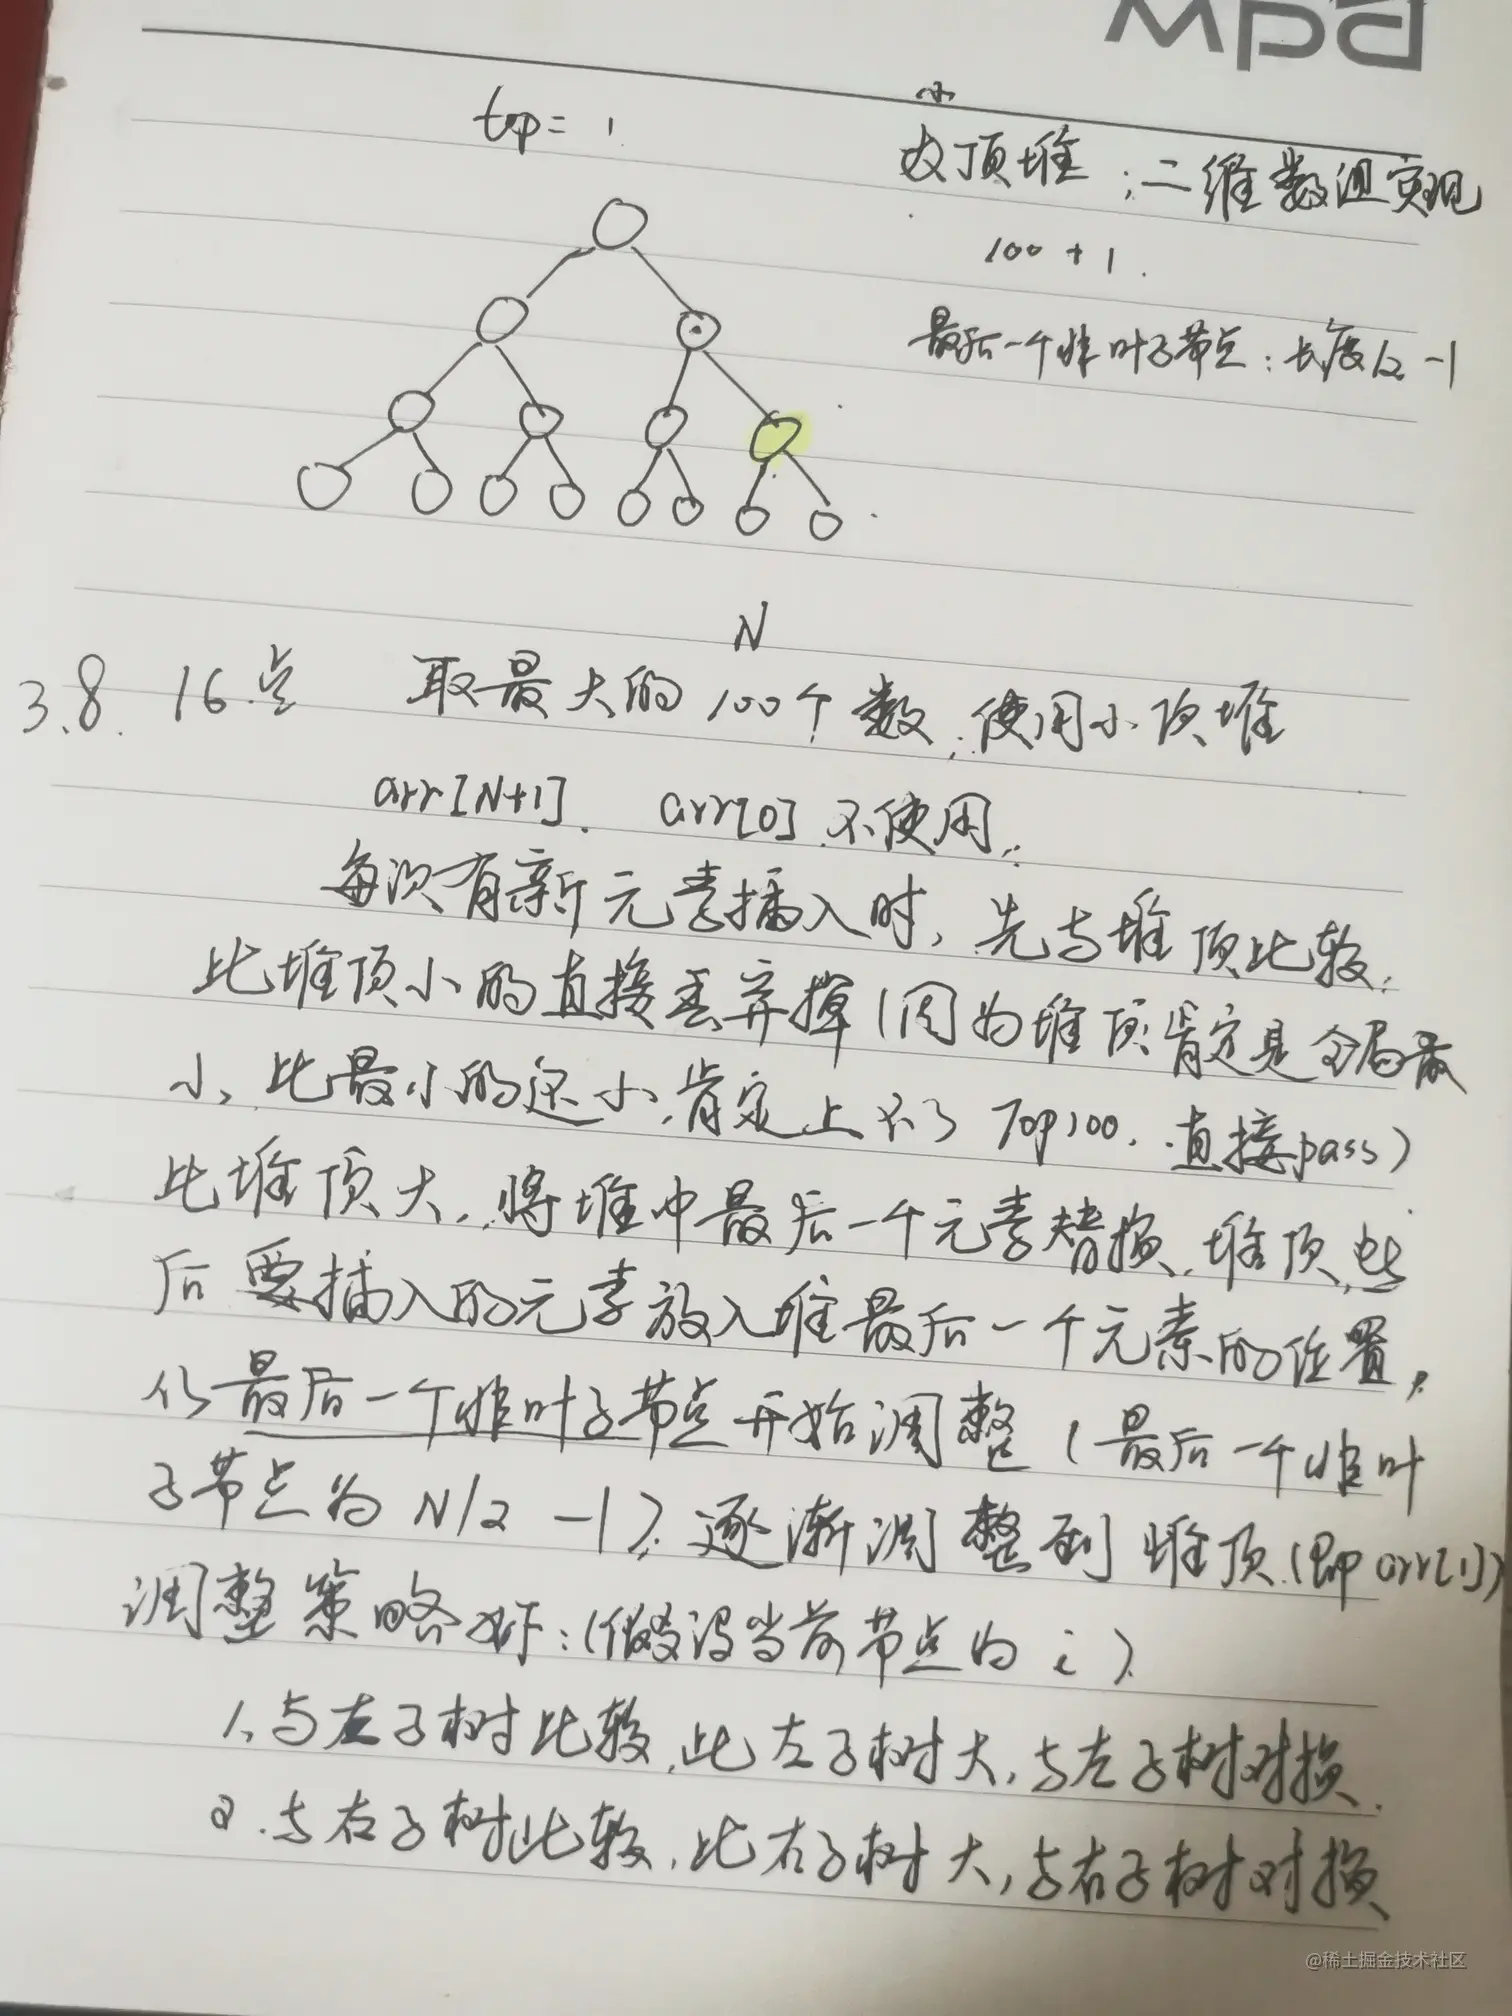 mpa
top = 1
小
大顶堆；二维数组实现
100 + 1.
最后一个非叶子节点：长度/2 -1
N
3.8. 16点 取最大的100个数，使用小顶堆
arr[N+1]. arr[0]不使用.
每次有新元素插入时，先与堆顶比较.
比堆顶小的直接丢弃掉(因为堆顶肯定是全局最
小，比最小的还小，肯定上不了Top100，直接pass)
比堆顶大，将堆中最后一个元素替换堆顶，然
后要插入的元素放入堆最后一个元素的位置，
从最后一个非叶子节点开始调整(最后一个非叶
子节点为N/2 -1)，逐渐调整到堆顶(即arr[1])
调整策略如下：(假设当前节点为i)
1、与左子树比较，比左子树大，与左子树对换.
2.与右子树比较，比右子树大，与右子树对换
@稀土掘金技术社区